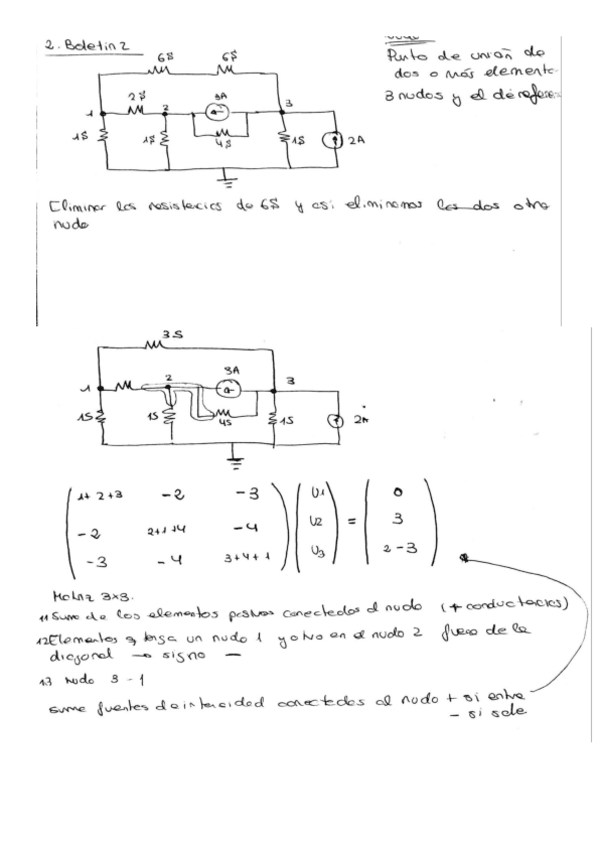 2. Boletin 2
Punto de unión de
dos o más elemento
3 nudos y el de referen
6S 6S
2S 2 3A 3
1
1S 1S 4S 1S 2A
Eliminar las resistencias de 6S y así eliminamos los dos otro
nudo
3S
3A
1 2 3
1S 1S 4S 1S 2A
1+2+3 -2 -3 U1 0
-2 2+1+4 -4 U2 = 3
-3 -4 3+4+1 U3 2-3
Matriz 3x3.
11 Suma de los elementos pasivos conectados al nudo (+ conductacias)
12 Elementos q tenga un nudo 1 y otro en el nudo 2 fuera de la
diagonal → signo -
13 Nudo 3-1
suma fuentes de intensidad conectadas al nudo + si entra
- si sale